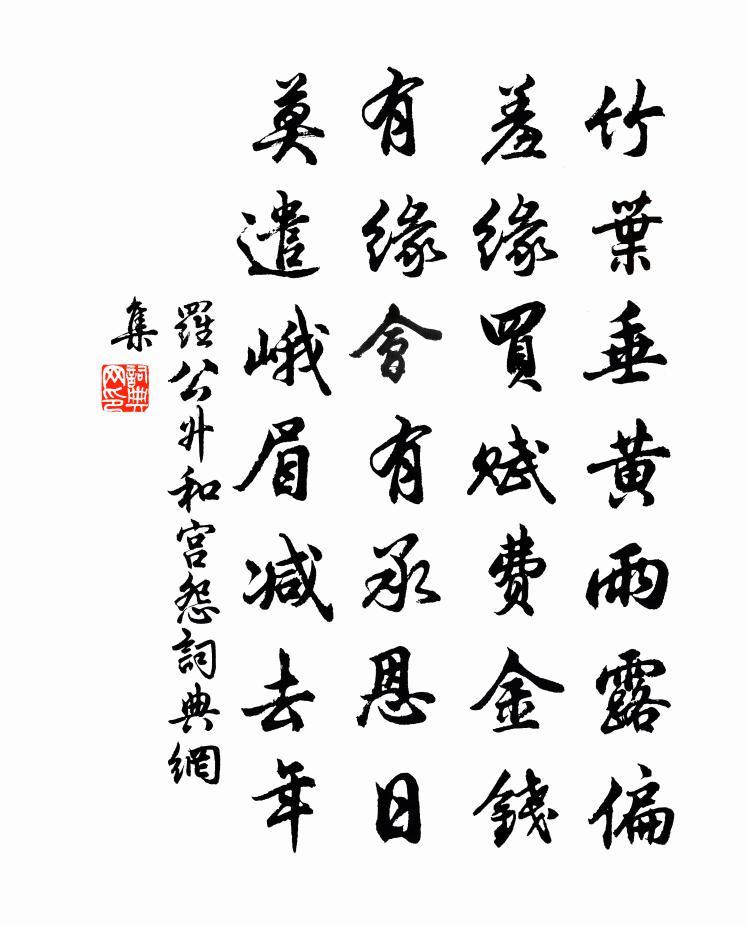 竹葉垂黃雨露偏
羞緣買賦費金錢
有緣會有承恩日
莫遣峨眉減去年
羅公升和宮怨詞典網
集
詞典
网印